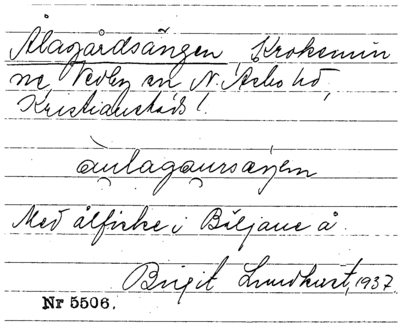 Ålagårdsängen, Krokemin
ne, Vedby sn N. Åsbo hd,
Kristianstads l.
åulagaursæŋen
Med ålfiske i Biljane å.
Birgit Lundkvist, 1937
Nr 5506.